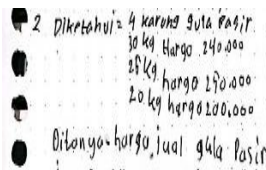 2 Diketahui = 4 karung gula Pasir
30 kg Hargo 240.000
25 kg hargo 250.000
20 kg hargo 200.000
Ditanya - hargo jual gula Pasir